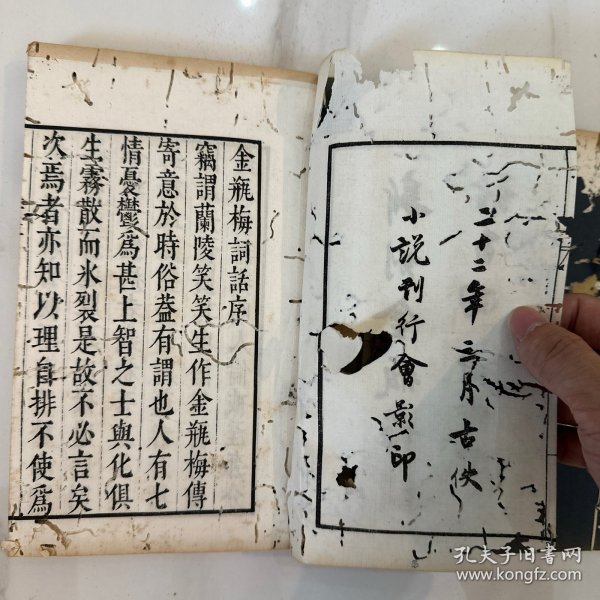 二十二年三月古佚
小說刊行會影印
金瓶梅詞話序
竊謂蘭陵笑笑生作金瓶梅傳
寄意於時俗葢有謂也人有七
情憂鬱爲甚上智之士與化俱
生霧散而氷裂是故不必言矣
次焉者亦知以理自排不使爲
孔夫子旧书网
www.kongfz.com